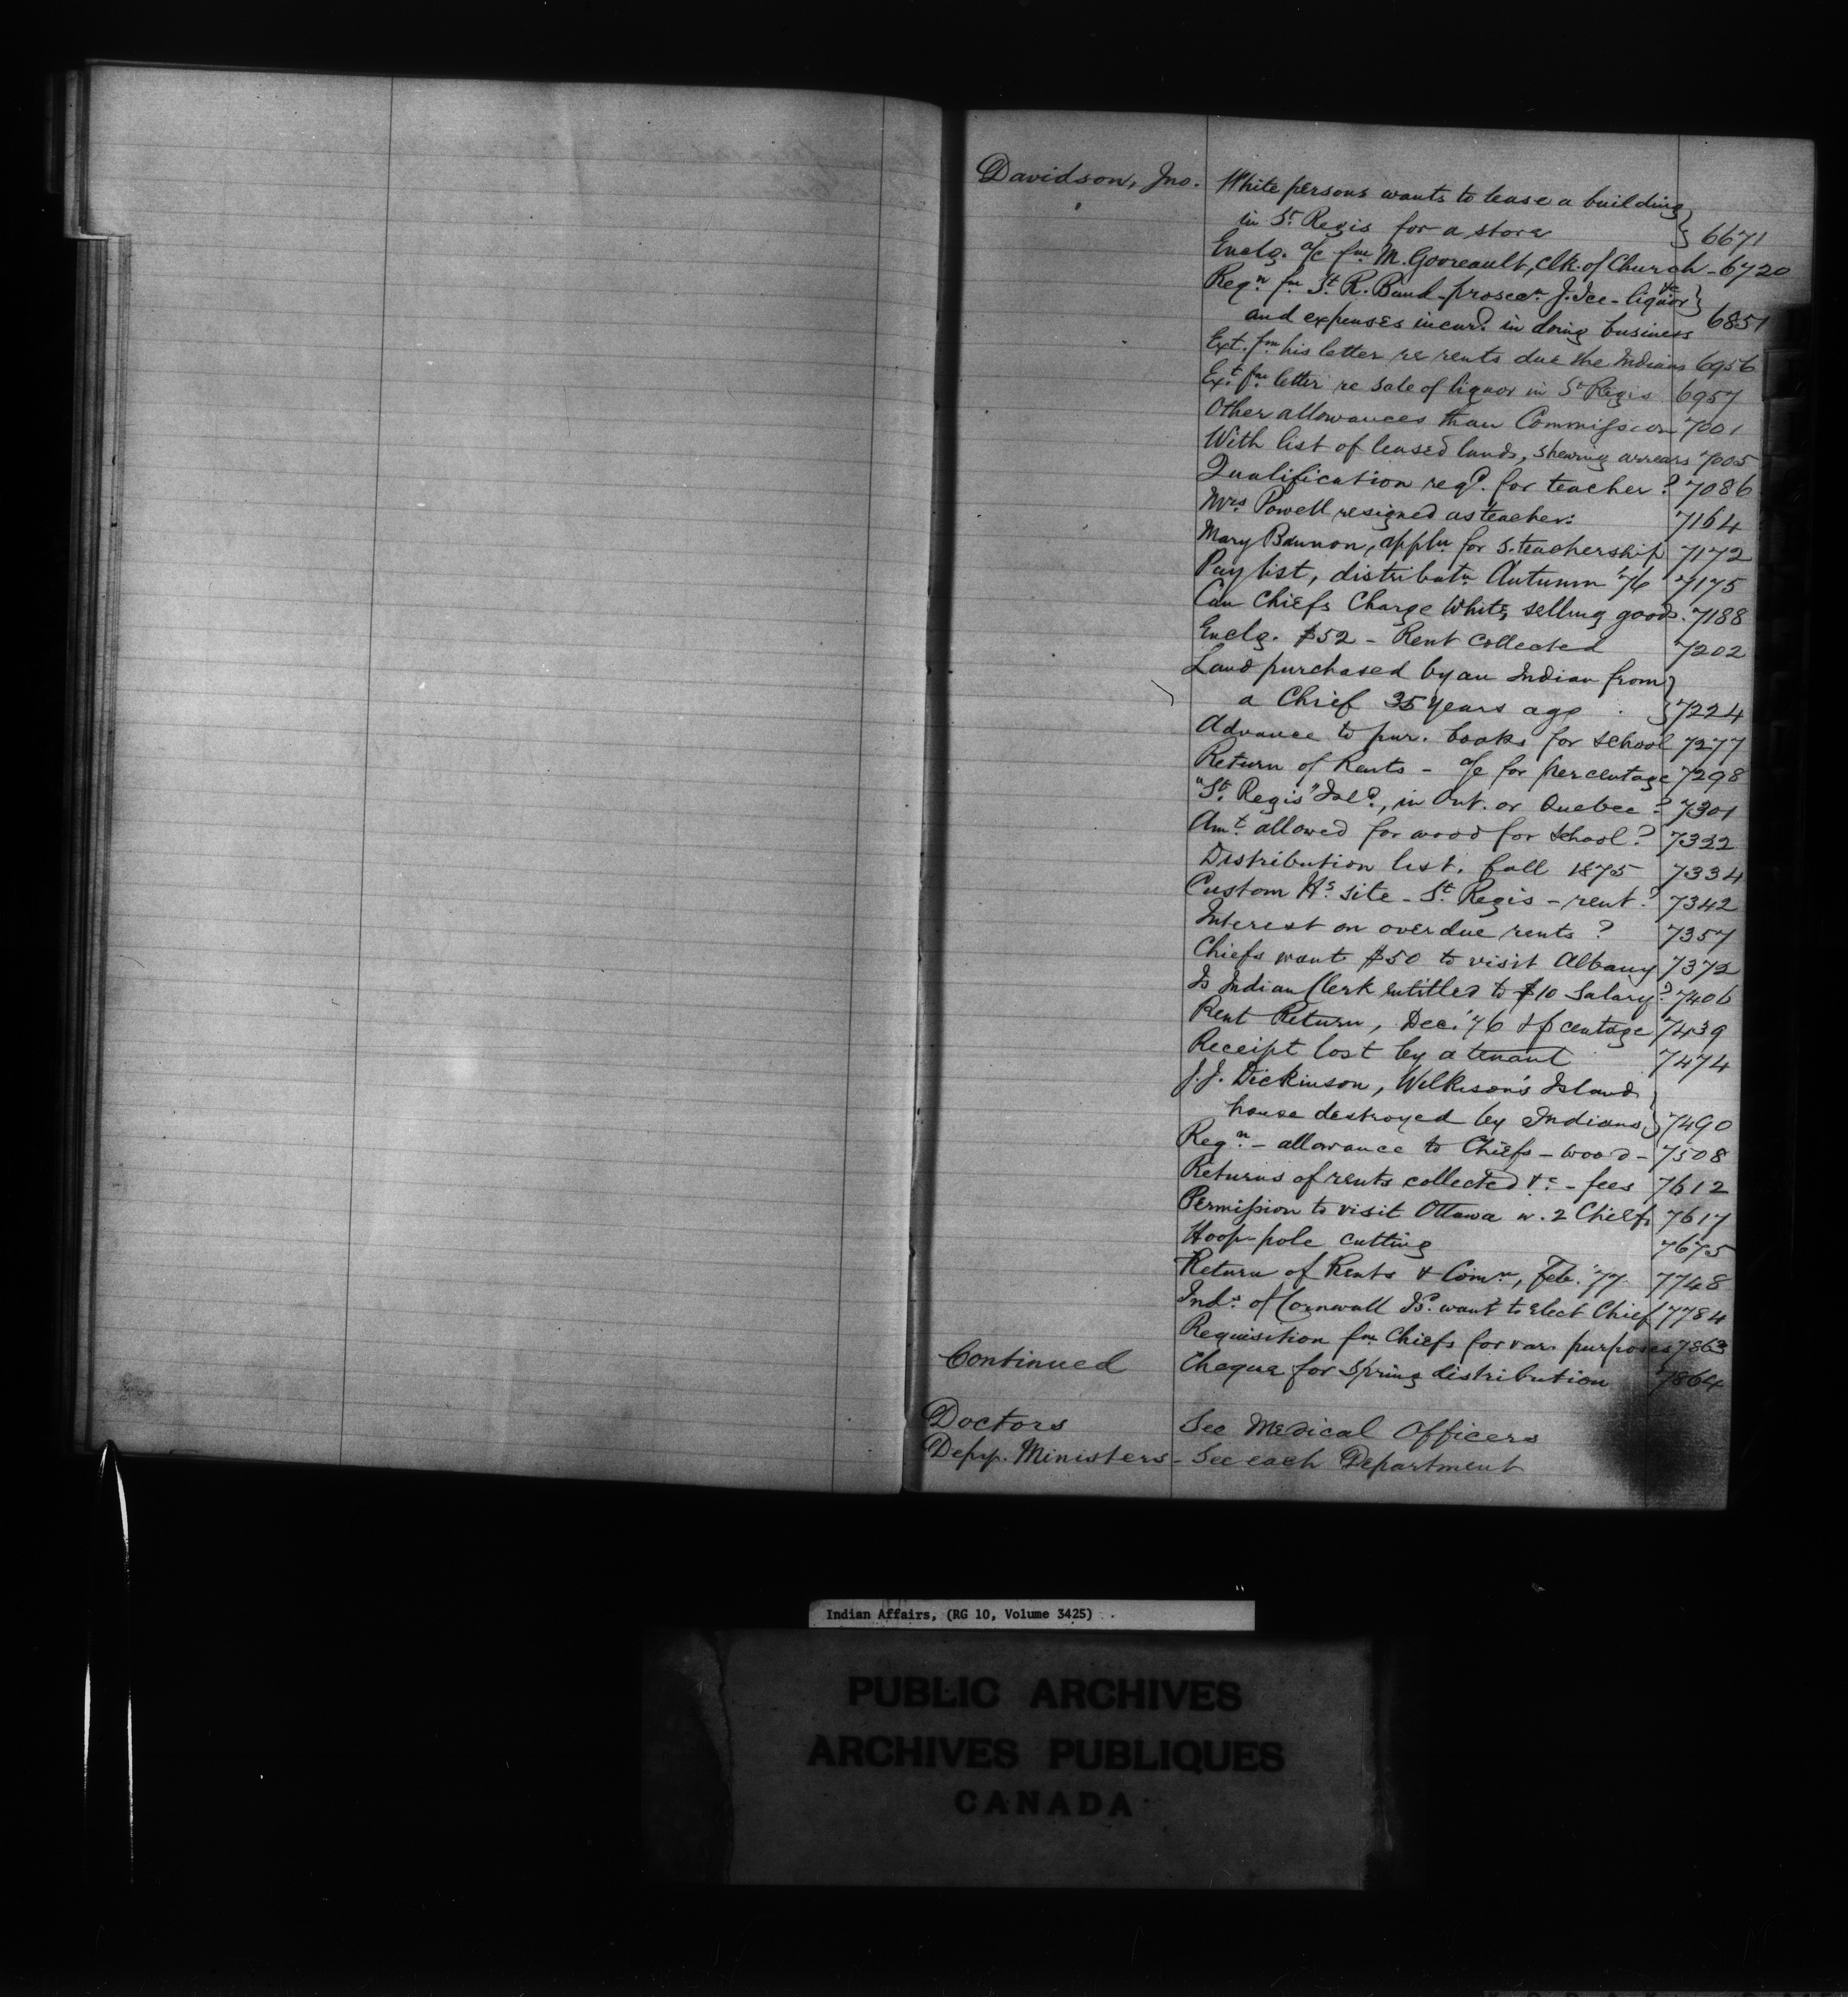 Davidson, Jno. White persons wants to lease a building
in St. Regis for a store } 6671
Enclg. a/c fm M. Gooreault, Clk. of Church - 6720
Reqn fm St. R. Band - prosecn. J. Ice - liquor &c }
and expenses incurd. in doing business 6851
Ext. fm his letter re rents due the Indians 6956
Ext. fm letter re sale of liquor in St Regis 6957
Other allowances than Commission 7001
With list of leased lands, shewing arrears 7005
Qualification reqd. for teacher? 7086
Mrs. Powell resigned as teacher. 7164
Mary Bannon, appln for S. teachership 7172
Pay list, distributn Autumn '76 7175
Can Chiefs Charge Whites selling goods. 7188
Enclg. $52 - Rent Collected 7202
Land purchased by an Indian from }
a Chief 35 years ago } 7224
Advance to pur. books for school 7277
Return of Rents - a/c for percentage 7298
"St. Regis" Isld., in Ont. or Quebec? 7301
Amt. allowed for wood for School? 7322
Distribution list, fall 1875 7334
Custom Hs. site - St. Regis - rent? 7342
Interest on overdue rents? 7357
Chiefs want $50 to visit Albany 7372
Is Indian Clerk entitled to $10 Salary? 7406
Rent Return, Dec. '76 & p centage 7439
Receipt lost by a tenant 7474
J. J. Dickinson, Wilkison's Island }
house destroyed by Indians } 7490
Reqn. - allowance to Chiefs - wood - 7508
Returns of rents collected &c. - fees 7612
Permission to visit Ottawa w. 2 Chiefs 7617
Hoop-pole cutting 7675
Return of Rents & Comn, Feb. '77 7748
Inds. of Cornwall Is. want to elect Chief 7784
Requisition fm Chiefs for var. purposes 7863
Continued Cheque for Spring distribution 7864
Doctors See Medical Officers
Depy. Ministers - See each Department
Indian Affairs, (RG 10, Volume 3425)
PUBLIC ARCHIVES
ARCHIVES PUBLIQUES
CANADA